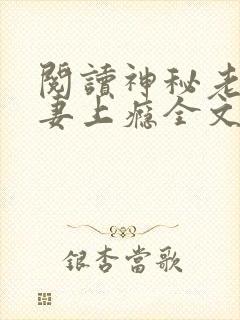 閱讀神秘老
妻上癮全文
銀杏當歌